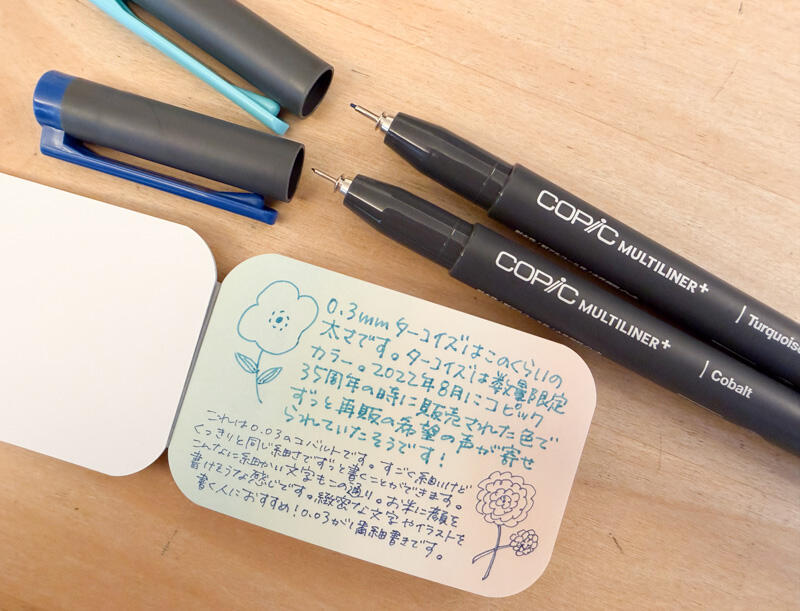 COPiC MULTILINER+
Turquoise
COPiC MULTILINER+
Cobalt
0.3mmターコイズはこのくらいの
太さです。ターコイズは数量限定
カラー。2022年8月にコピック
35周年の時に販売された色で
ずっと再販の希望の声が寄せ
られていたそうです!
これは0.03のコバルトです。すごく細いけど
くっきりと同じ細さでずっと書くことができます。
こんなに細かい文字もこの通り。お米に顔を
書けそうな感じです。緻密な文字やイラストを
書く人におすすめ!0.03が1番細書きです。